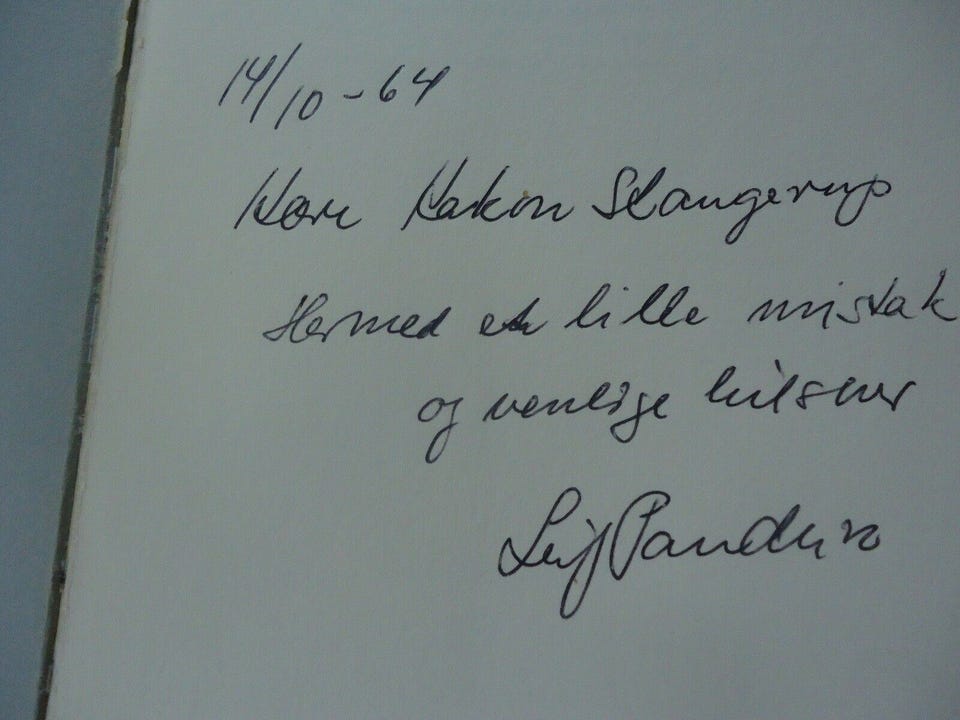 14/10-64
Kære Hakon Stangerup
Hermed et lille mistak
og venlige hilsner
Leif Panduro